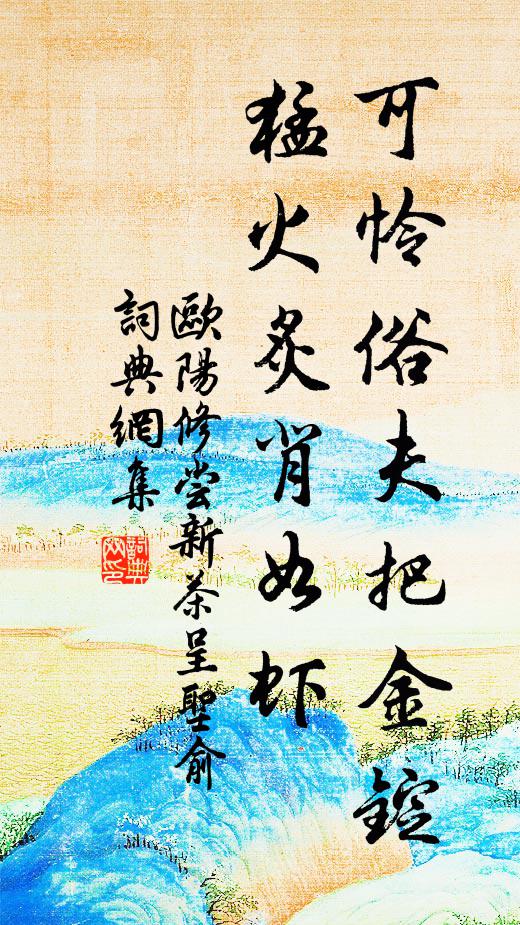 可怜俗夫把金錠
猛火炙背如虾
歐陽修尝新茶呈聖俞
詞典網集
詞典网印